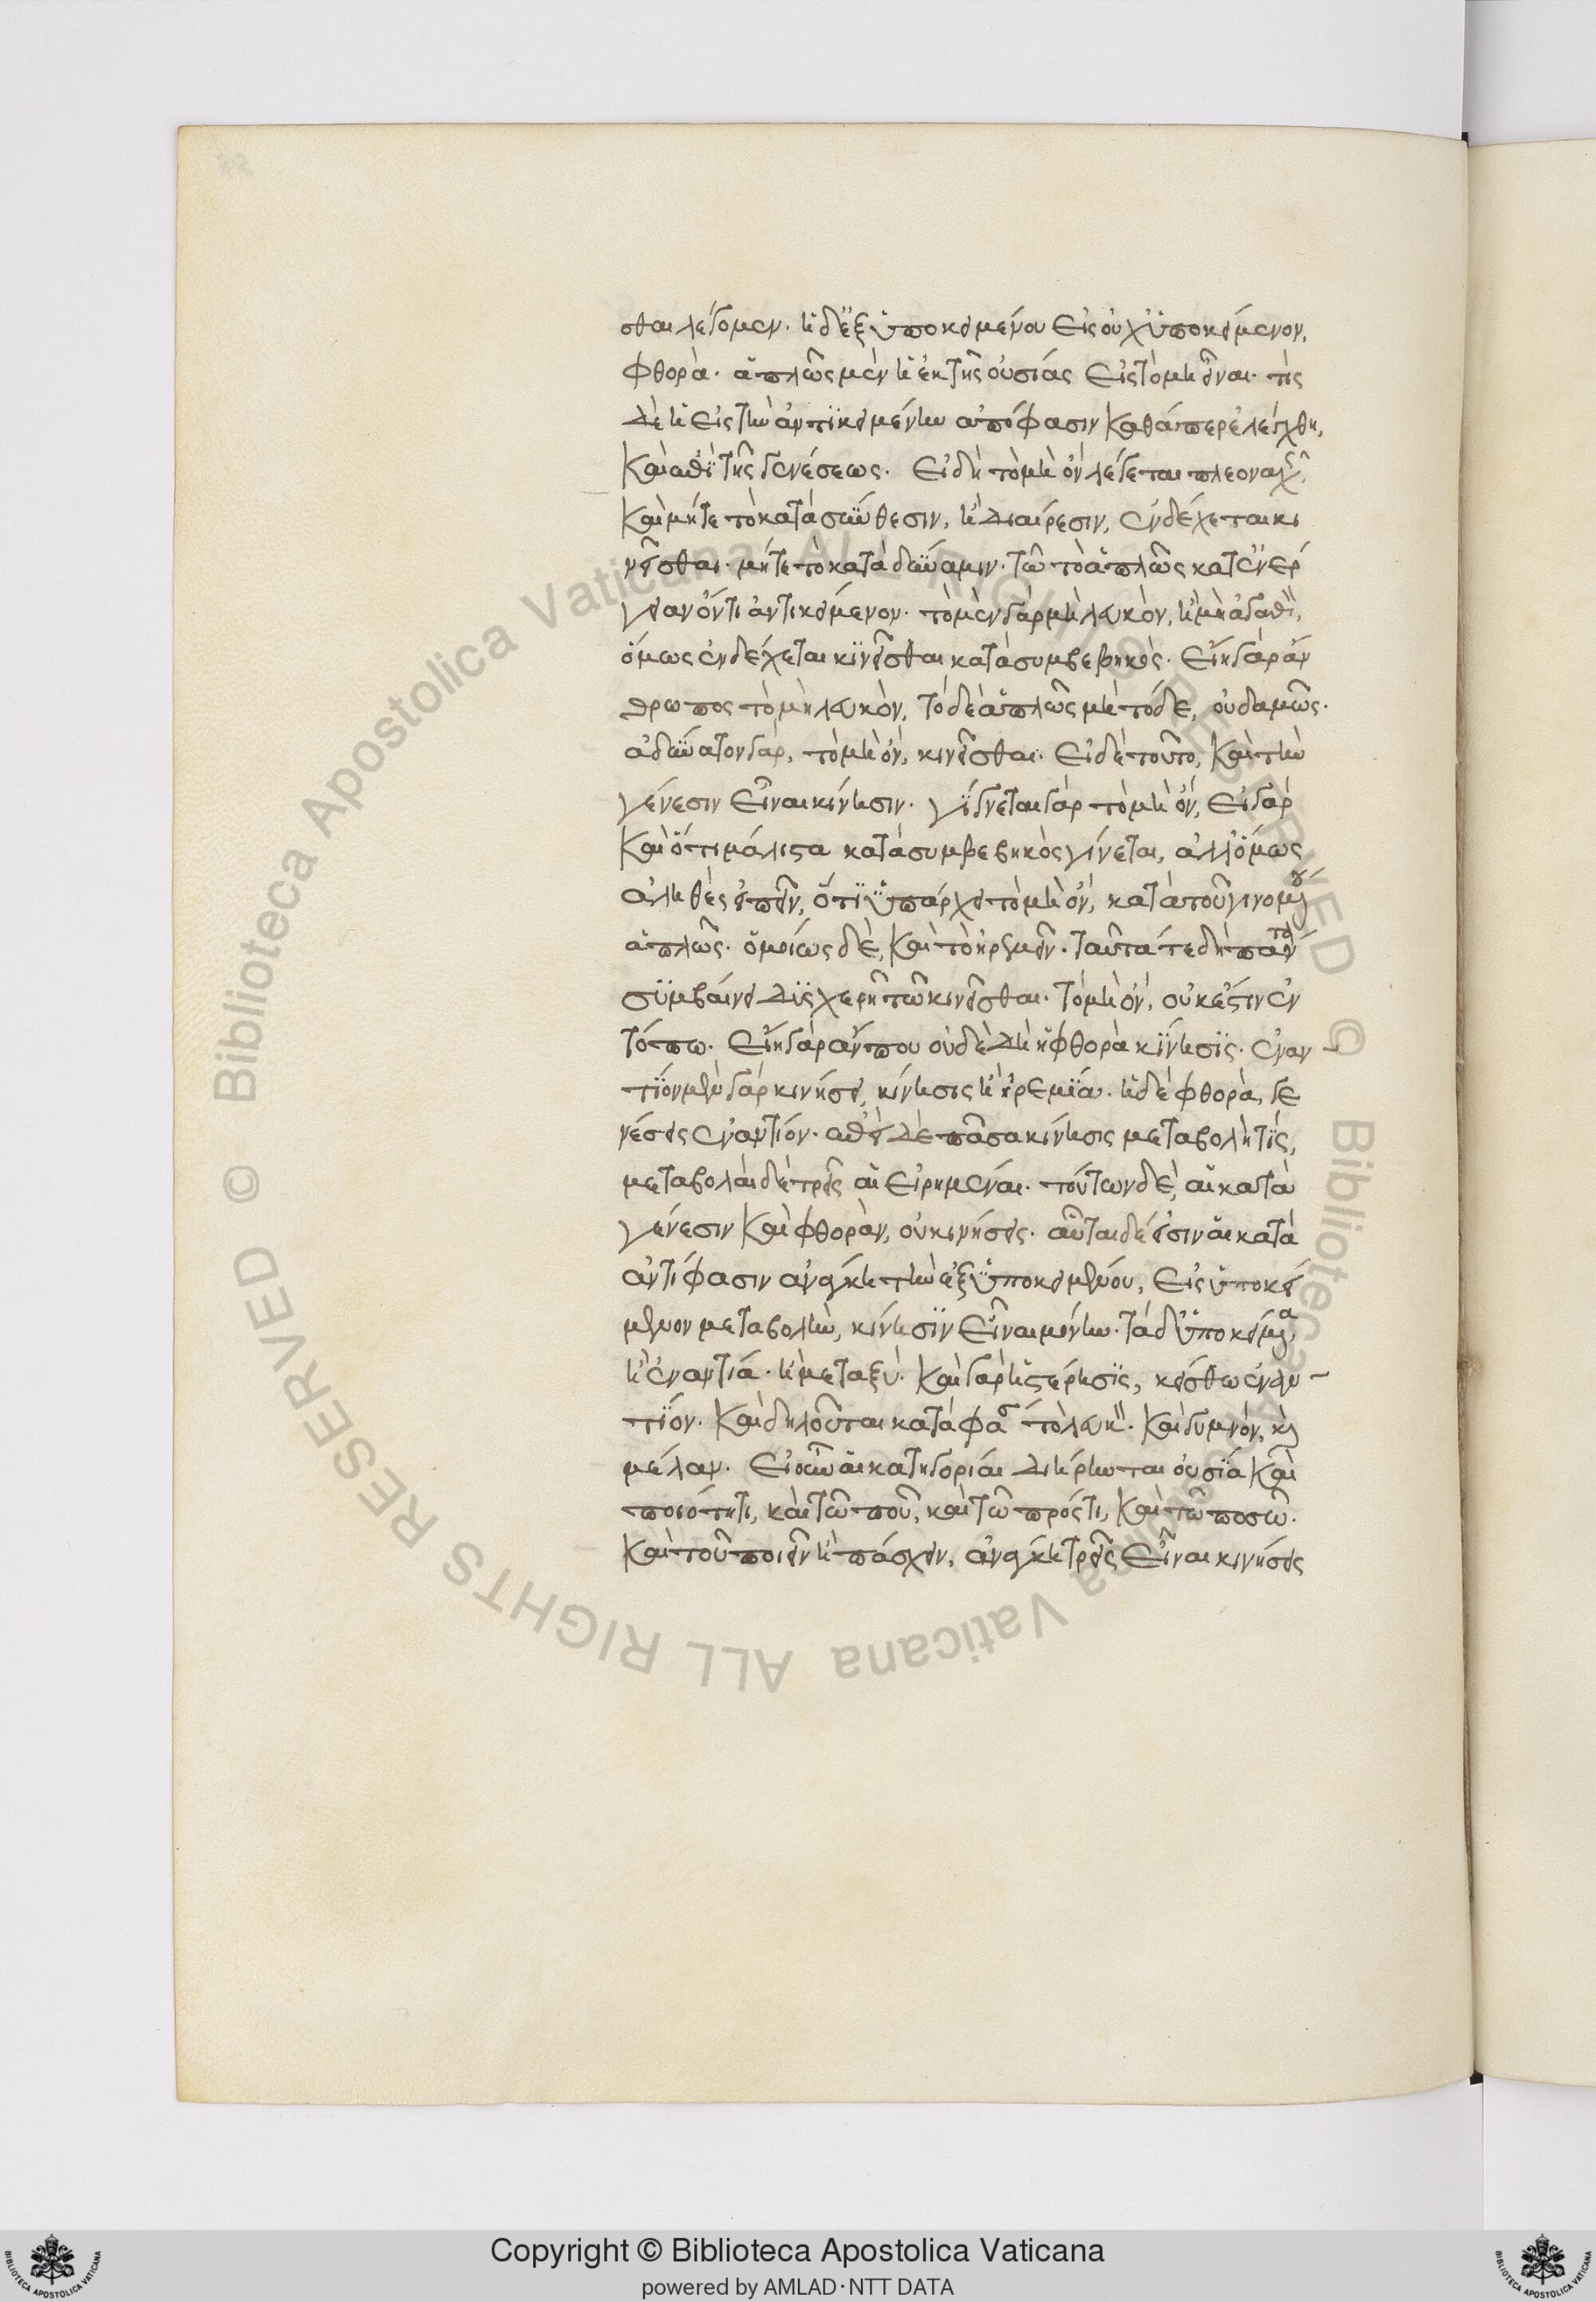 σθαι λέγομεν. ἡ δ' ἐξ ὑποκειμένου εἰς οὐχ ὑποκείμενον,
φθορά. ἁπλῶς μὲν ἡ ἐκ τῆς οὐσίας εἰς τὸ μὴ εἶναι. τὶς
δὲ ἡ εἰς τὴν ἀντικειμένην ἀπόφασιν καθάπερ ἐλέχθη,
καὶ ἐπὶ τῆς γενέσεως. εἰ δὴ τὸ μὴ ὂν λέγεται πλεοναχῶς,
καὶ μήτε τὸ κατὰ σύνθεσιν, ἢ διαίρεσιν, ἐνδέχεται κι
νεῖσθαι. μήτε τὸ κατὰ δύναμιν. τῶ τὸ ἁπλῶς κατ' ἐνέρ
γειαν ὄντι ἀντικείμενον. τὸ μὲν γὰρ μὴ λευκὸν, ἢ μὴ ἀγαθὸν,
ὅμως ἐνδέχεται κινεῖσθαι κατὰ συμβεβηκός. εἴη γὰρ ἂν
θρωπος τὸ μὴ λευκὸν, τὸ δὲ ἁπλῶς μὴ τόδε, οὐδαμῶς.
ἀδύνατον γὰρ, τὸ μὴ ὂν, κινεῖσθαι. εἰ δὲ τοῦτο, καὶ τὴν
γένεσιν εἶναι κίνησιν. γίγνεται γὰρ τὸ μὴ ὂν, εἰ γὰρ
καὶ ὅτι μάλιστα κατὰ συμβεβηκὸς γίνεται, ἀλλ' ὅμως
ἀληθὲς εἰπεῖν, ὅτι ὑπάρχει τὸ μὴ ὂν, κατὰ τοῦ γινομένου
ἁπλῶς. ὁμοίως δὲ, καὶ τὸ ἠρεμεῖν. ταῦτά τε δὴ πάντα
συμβαίνει δυσχερῆ τῶ κινεῖσθαι. τὸ μὴ ὂν, οὐκ ἔστιν ἐν
τόπω. εἴη γὰρ ἄν που οὐδὲ δὴ ἡ φθορὰ κίνησις. ἐναν
τίον μὲν γὰρ κινήσει, κίνησις ἢ ἠρεμία. ἡ δὲ φθορὰ, γε
νέσεις ἐναντίον. ἐπεὶ δὲ πᾶσα κίνησις μεταβολή τις,
μεταβολαὶ δὲ τρεῖς αἱ εἰρημέναι. τούτων δὲ, αἱ κατὰ
γένεσιν καὶ φθορὰν, οὐ κινήσεις. αὗται δέ εἰσιν αἱ κατὰ
ἀντίφασιν ἀνάγκη τὴν ἐξ ὑποκειμένου, εἰς ὑποκεί
μενον μεταβολὴν, κίνησιν εἶναι μόνην. τὰ δ' ὑποκείμενα,
ἢ ἐναντία. ἢ μεταξύ. καὶ γὰρ ἡ στέρησις, κείσθω ἐναν
τίον. καὶ δηλοῦται κατάφασ τὸ λευκὸν. καὶ γυμνὸν, καὶ
μέλαν. εἰ οὖν αἱ κατηγορίαι διήρηνται οὐσία καὶ
ποιότητι, καὶ τῶ ποῦ, καὶ τῶ πρός τι, καὶ τῶ ποσῶ.
καὶ τοῦ ποιεῖν ἢ πάσχειν, ἀνάγκη τρεῖς εἶναι κινήσεις
Copyright © Biblioteca Apostolica Vaticana
powered by AMLAD·NTT DATA